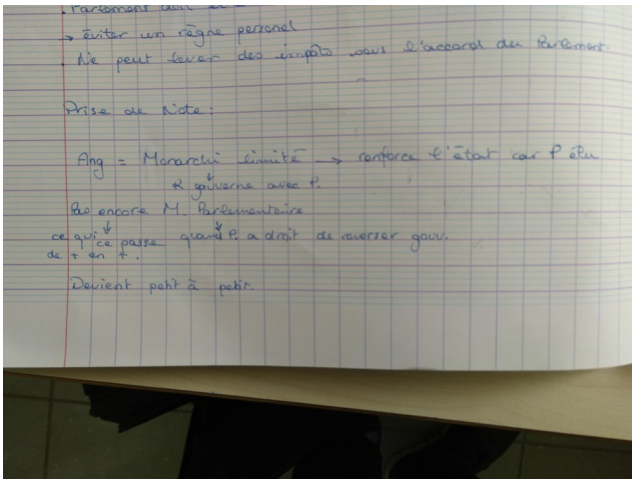 Parlement doit
→ éviter un règne personel
. Ne peut lever des impôts sans l'accord du Parlement.
Prise de Note:
Ang = Monarchi limité → renforce l'état car P élu
R gouverne avec P.
Pas encore M. Parlementaire
ce qui ce passe quand P. a droit de reverser gouv.
de + en +.
Devient petit à petit.